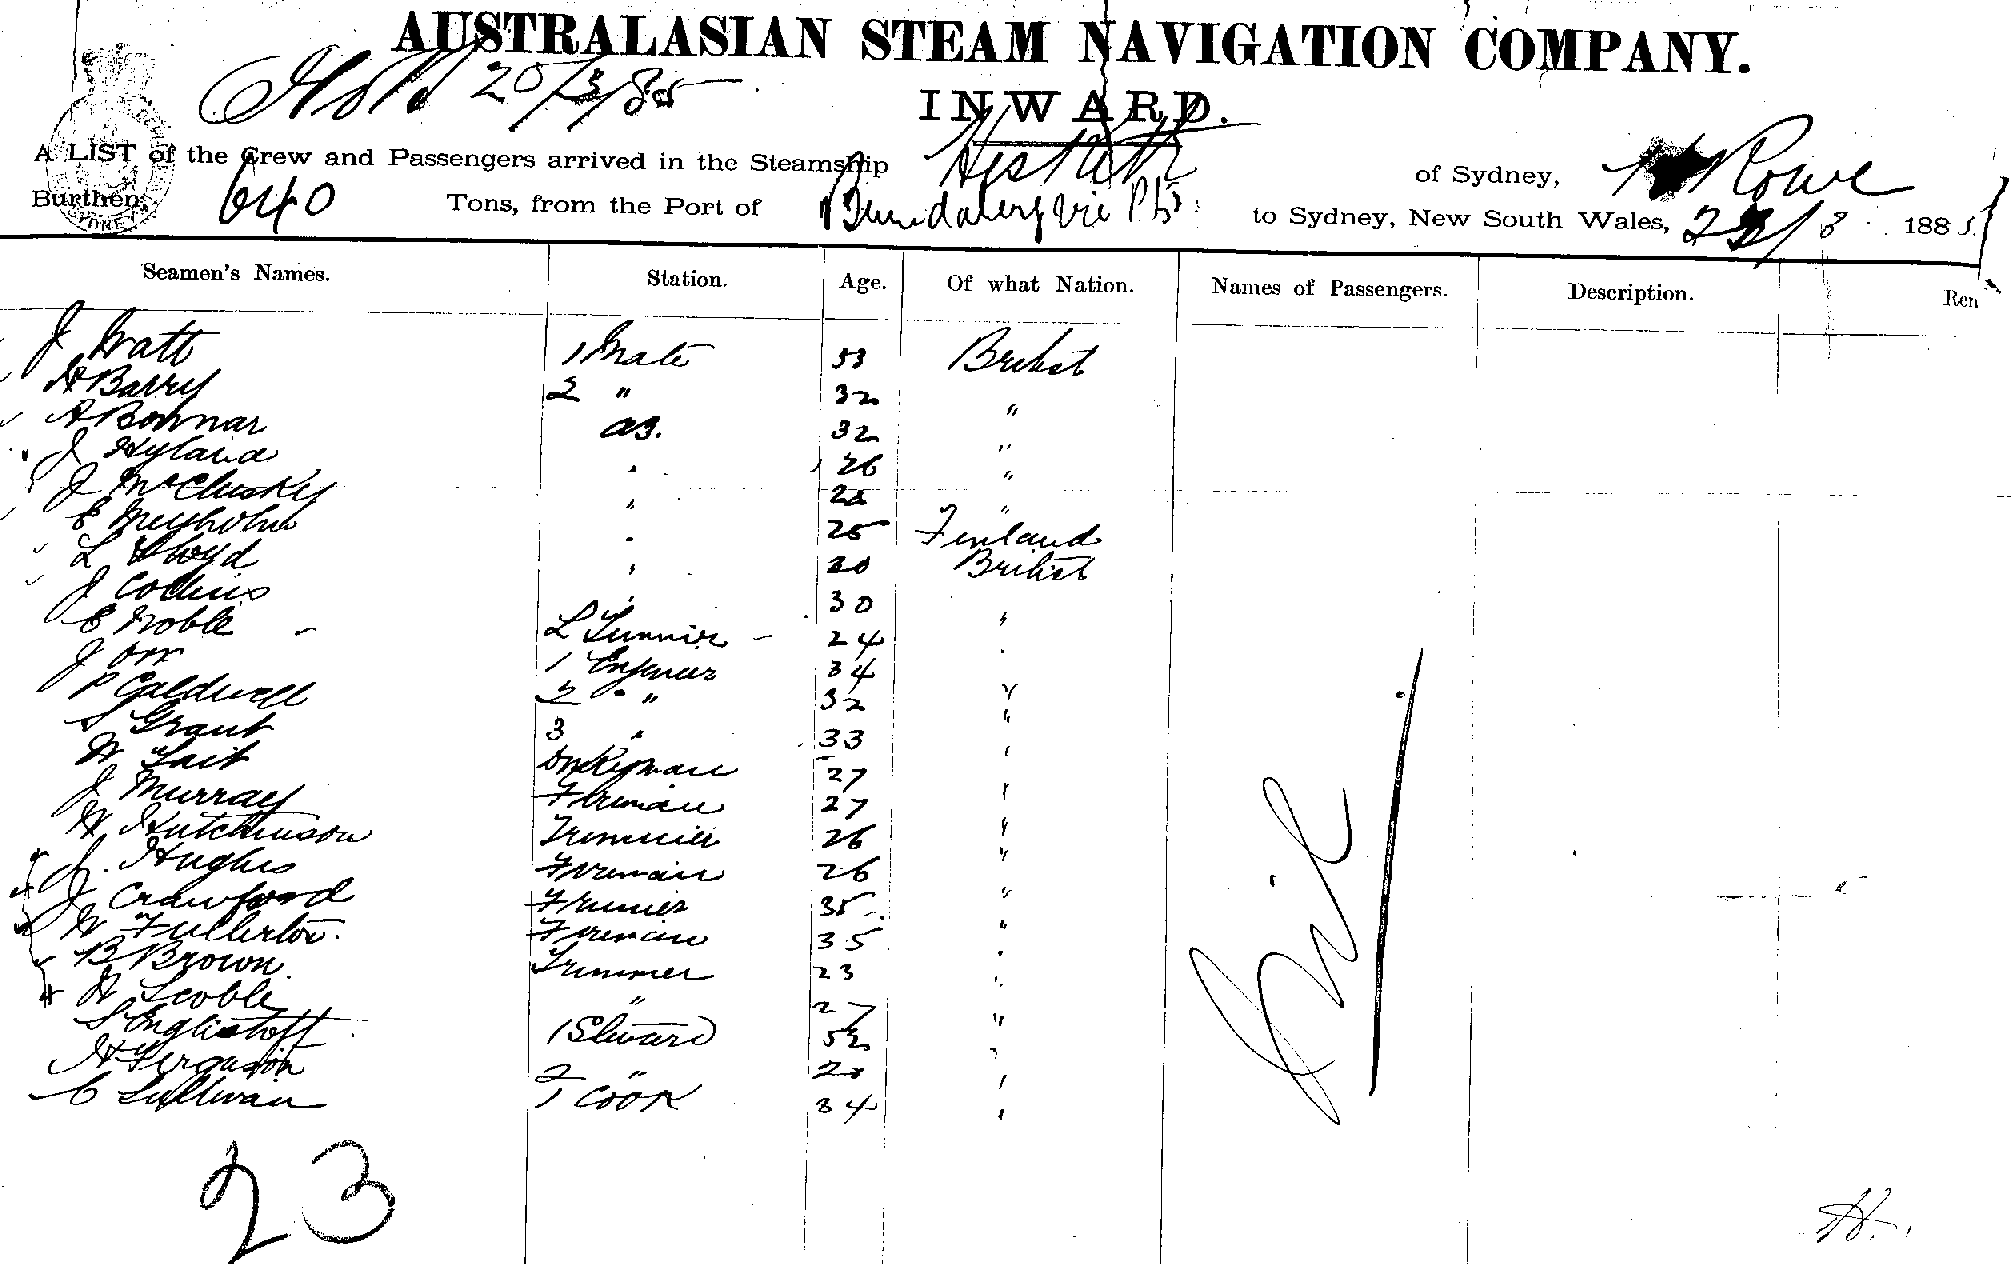 AUSTRALASIAN STEAM NAVIGATION COMPANY.
25/3/85
INWARD.
A LIST of the Crew and Passengers arrived in the Steamship Hesketh of Sydney, Rowe
Burthen, 640 Tons, from the Port of Bundaberg via Pts to Sydney, New South Wales, 22/3 1885.
Seamen's Names. Station. Age. Of what Nation. Names of Passengers. Description. Rem
J Watt 1 Mate 53 British
H Barry 2 " 32 "
A Bonnar AB. 32 "
J Hyland " 26 "
J McCluskey " "
E " 25 Finland
L Lloyd " 20 British
J Collins " 30 "
E Noble L Trimmer 24 "
J Orr 1 Engineer 34 "
P Caldwell 2 " " 32 "
S Grant 3 " 33 "
W Tait Donkeyman 27 "
J Murray Fireman 27 "
W Hutchinson Trimmer 26 "
J. Hughes Fireman 26 "
J Crawford 35 "
W Fullerton. Fireman 35 "
B Brown Trimmer 23 "
H Scoble " 27 "
S 1 Steward 52 "
H Ferguson 2 " "
C Sullivan 1 Cook 34 "
Nil
23
H.